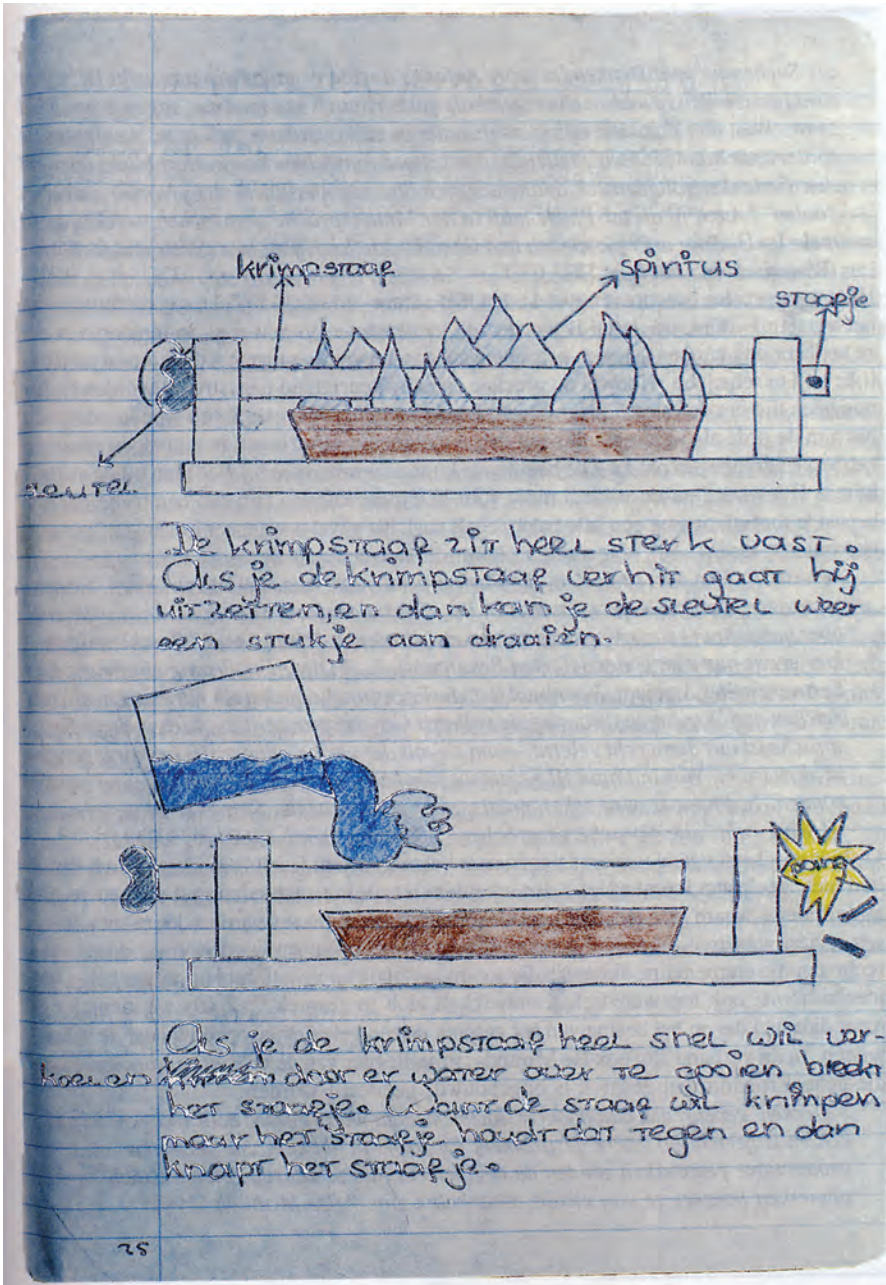 krimpstaaf
spiritus
staafje
sleutel
De krimpstaaf zit heel sterk vast.
Als je de krimpstaaf verhit gaat hij
uitzetten, en dan kan je de sleutel weer
een stukje aan draaien.
pang
Als je de krimpstaaf heel snel wil ver-
koelen door er water over te gooien breekt
het staafje. Want de staaf wil krimpen
maar het staafje houdt dat tegen en dan
knapt het staafje.
25